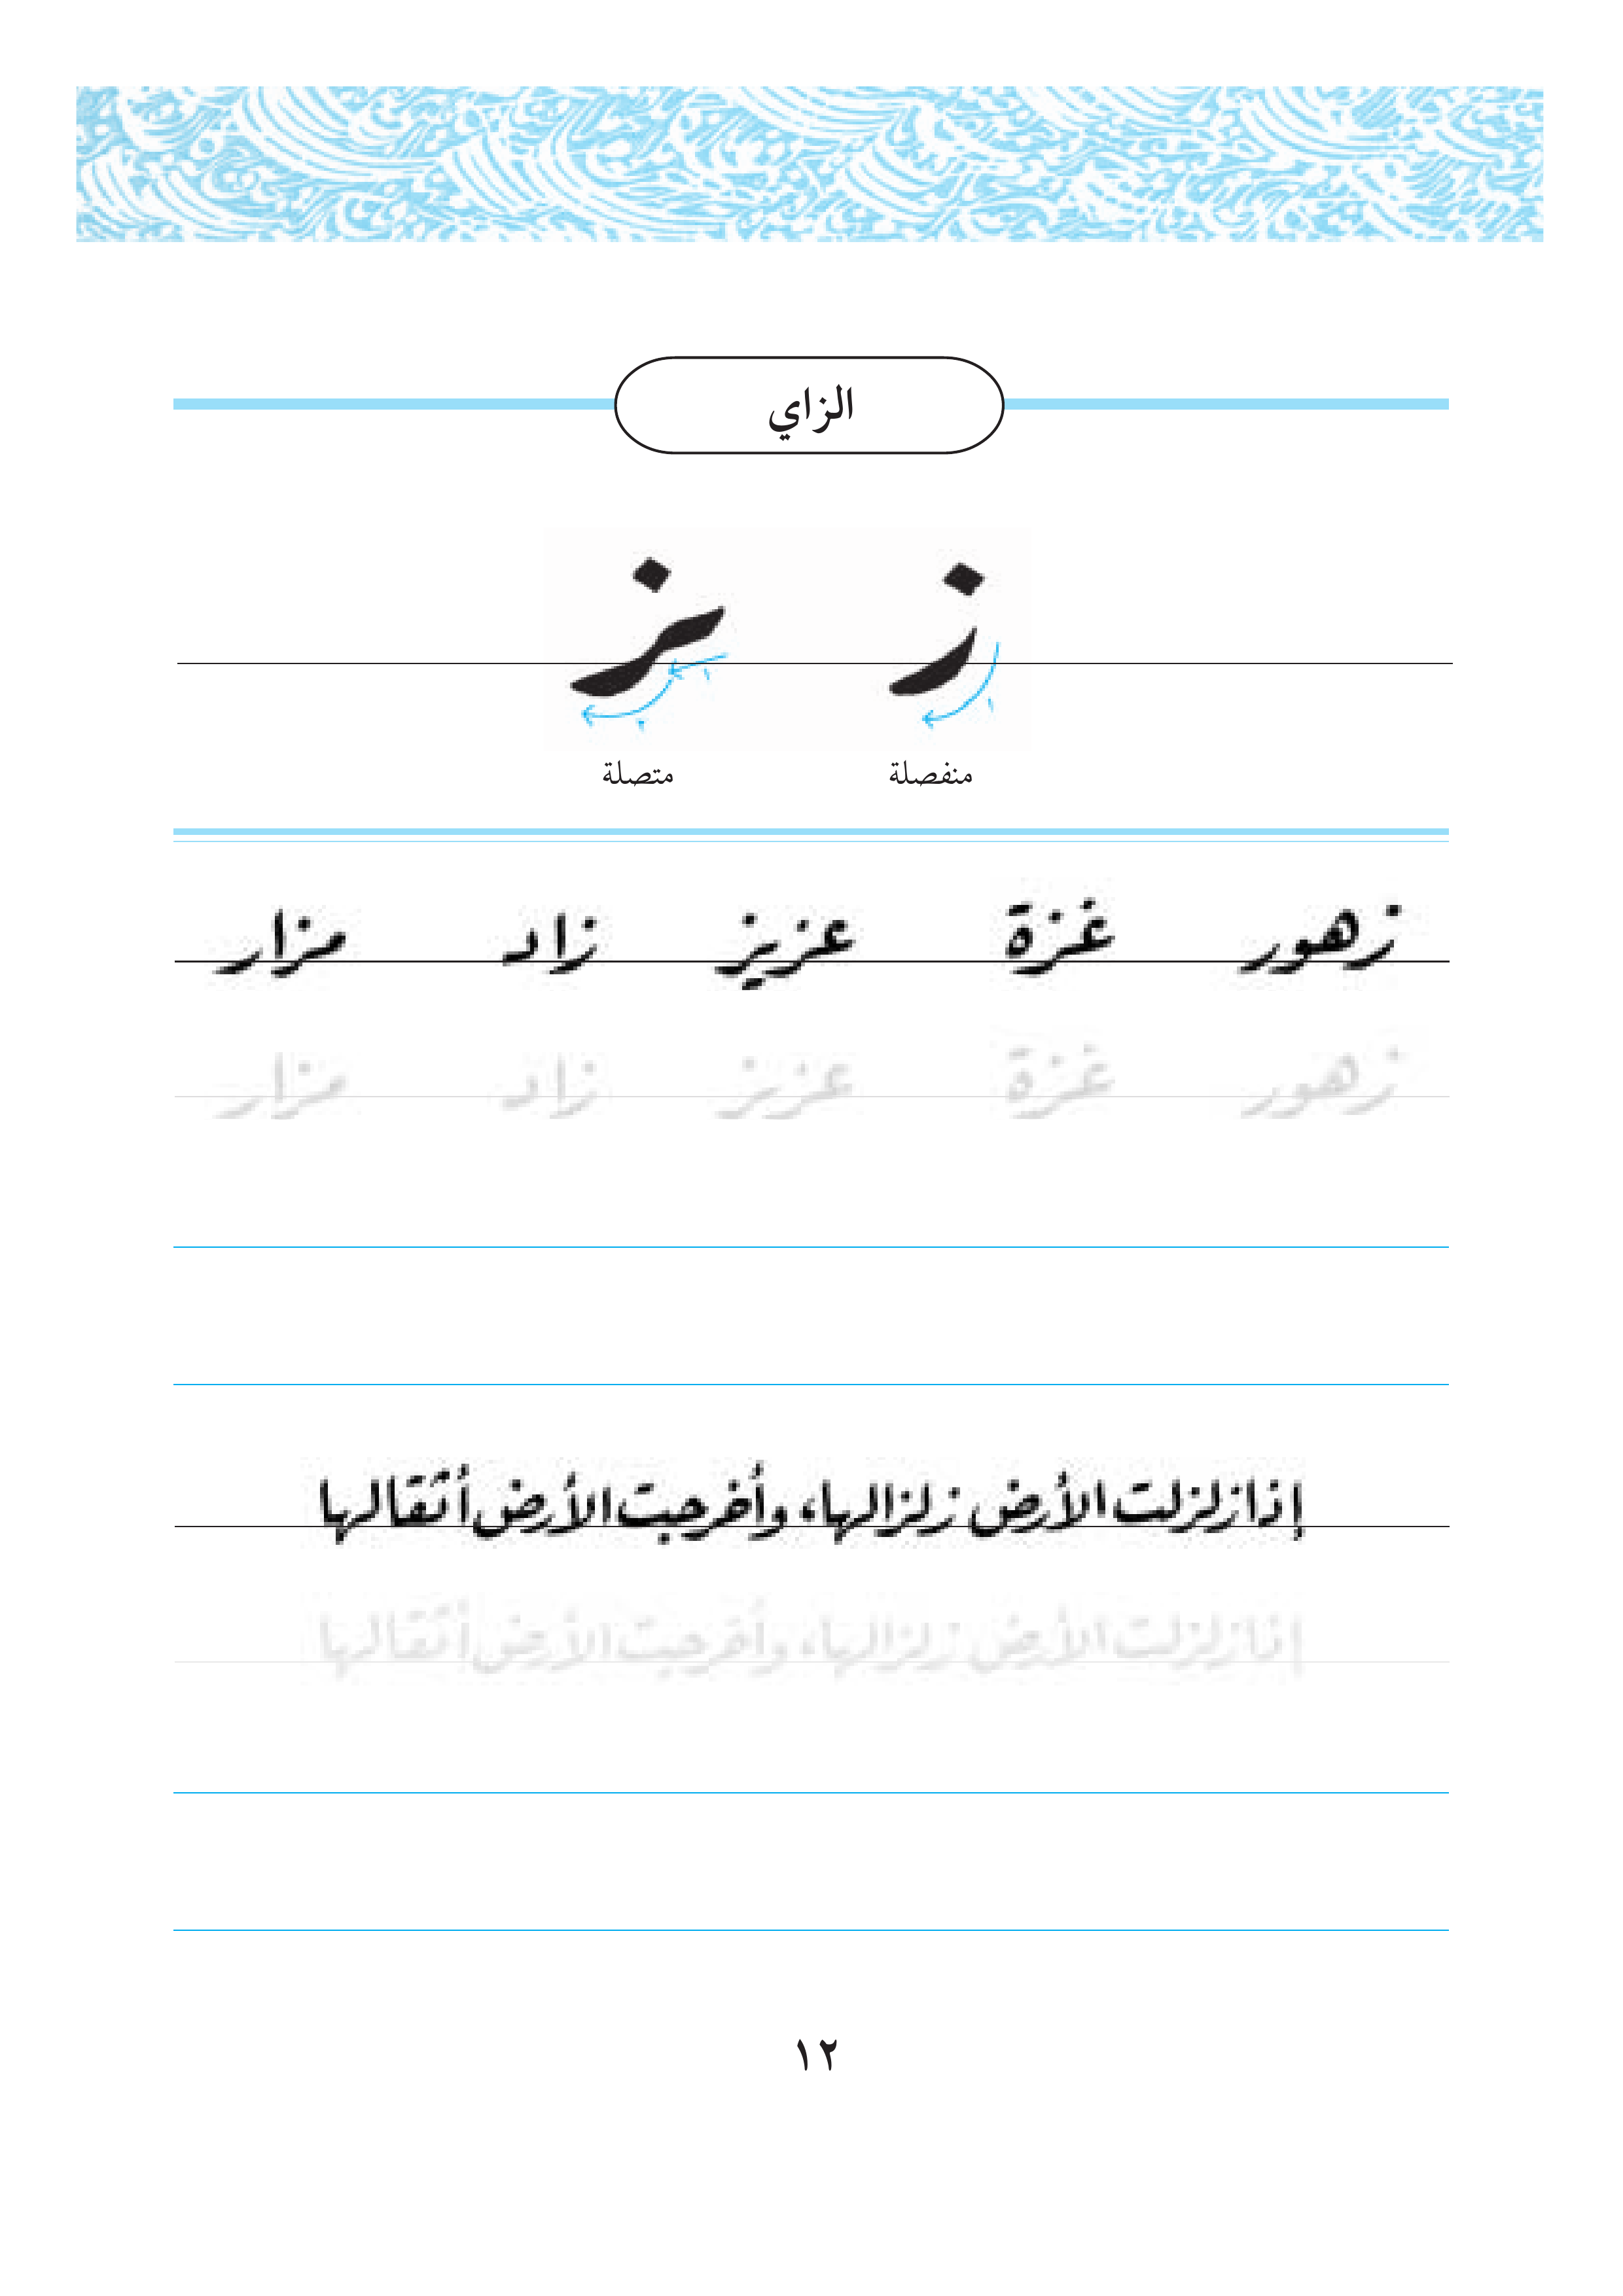 الزاي
ز ـز
١ ١ ٢
منفصلة متصلة
زهور غزة عزيز زاد مزار
زهور غزة عزيز زاد مزار
إذا زلزلت الأرض زلزالها، وأخرجت الأرض أثقالها
إذا زلزلت الأرض زلزالها، وأخرجت الأرض أثقالها
١٢